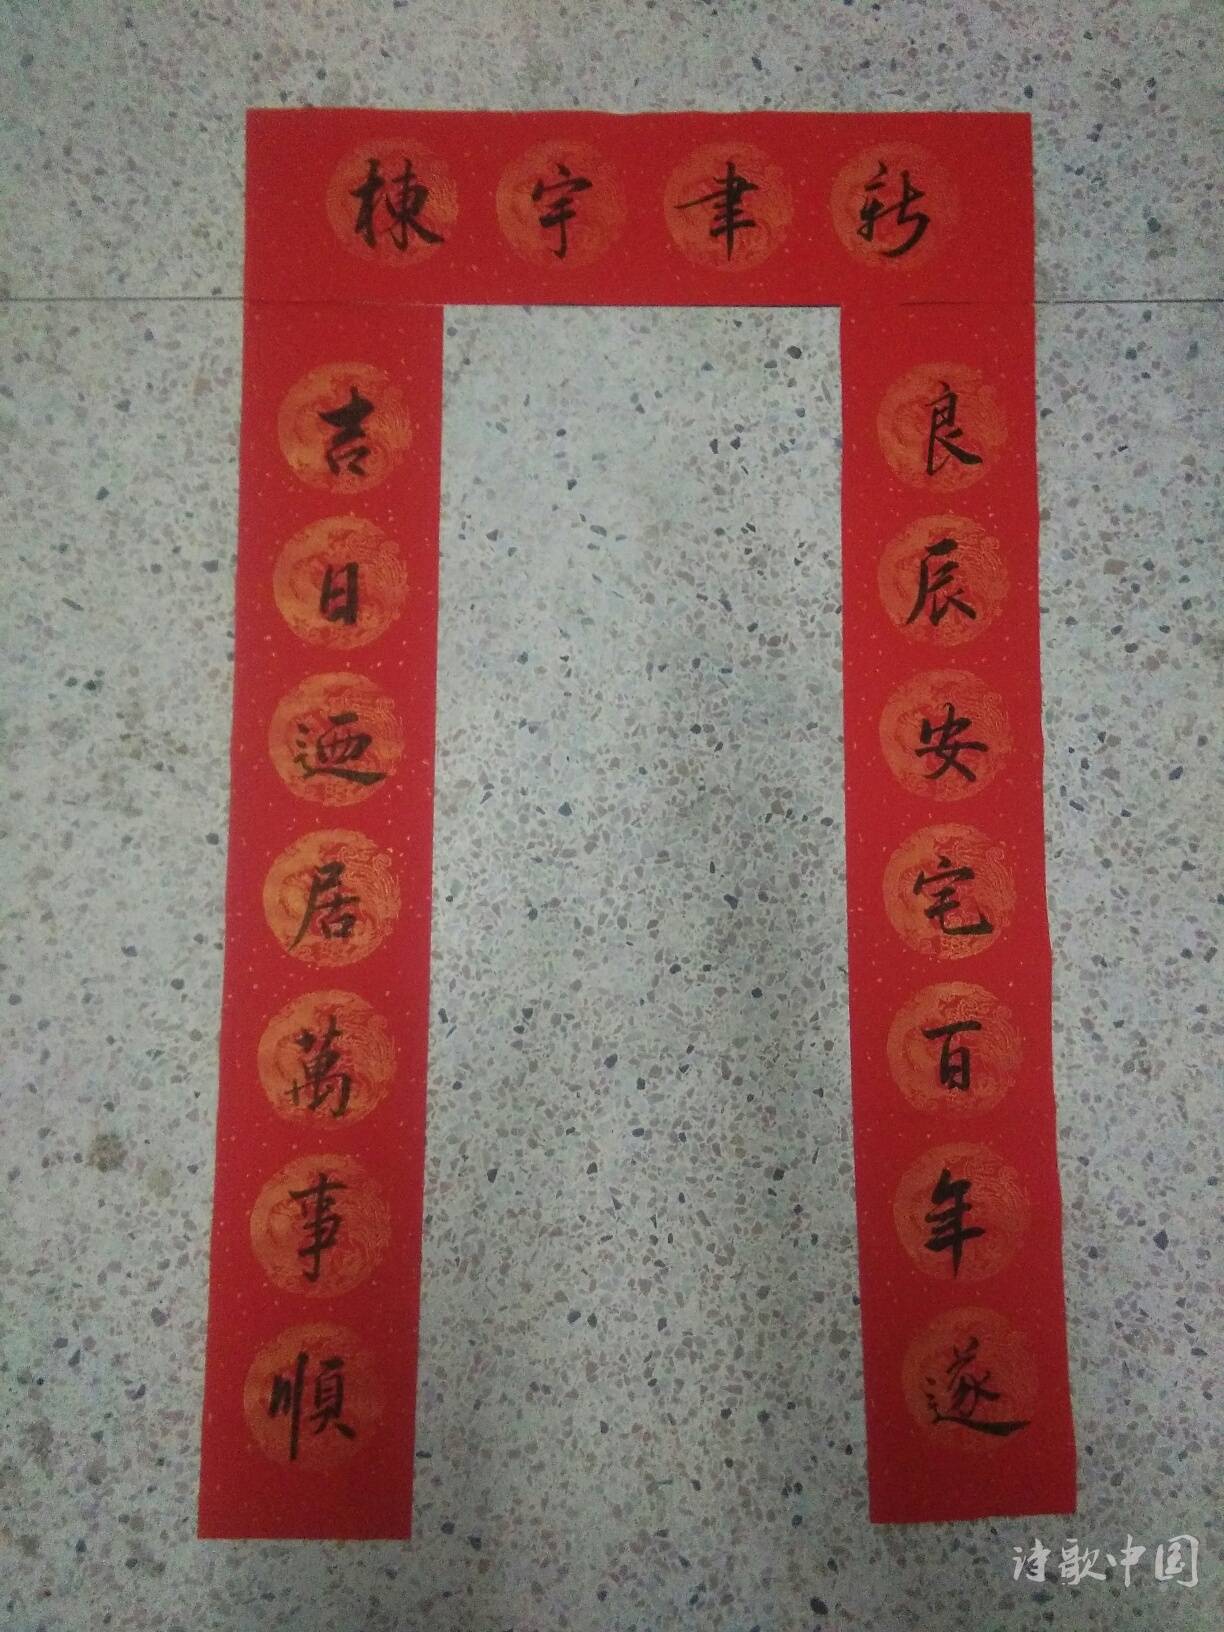 棟宇聿新
良辰安宅百年遂
吉日迺居萬事順
诗歌中国